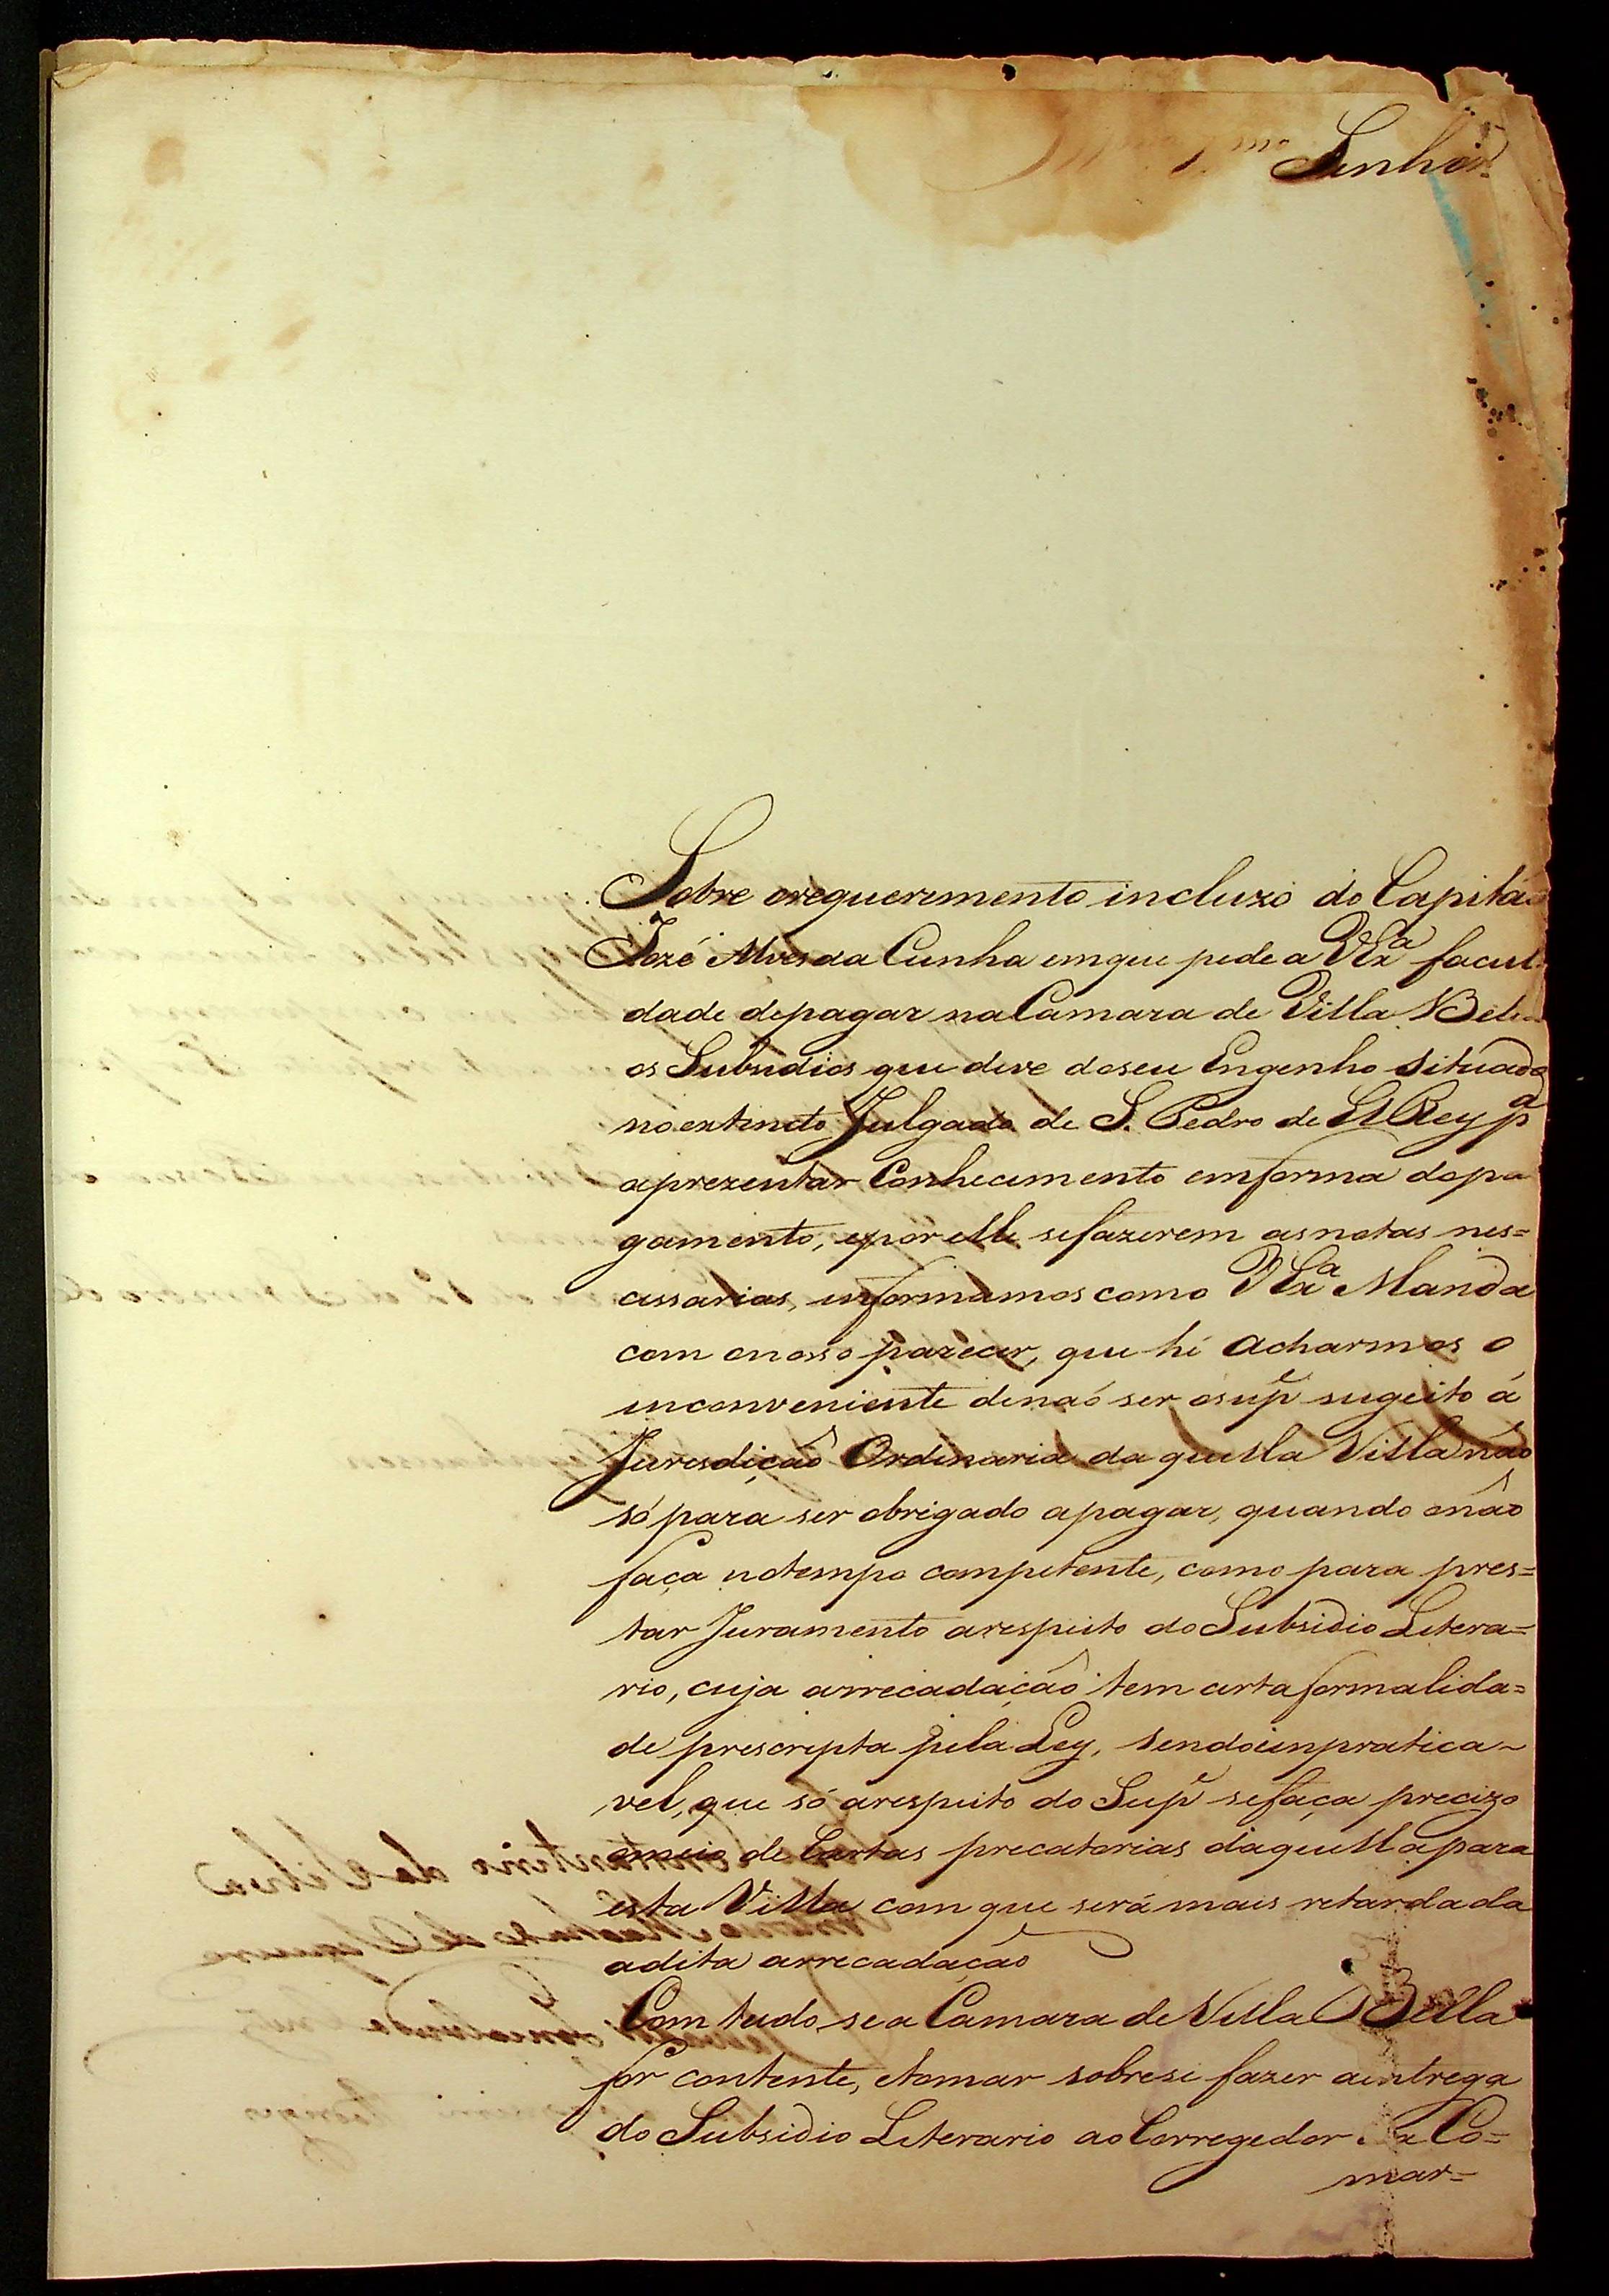 Senhor
Sobre orequerimento incluzo do Capitão
Jozé Alves da Cunha emque pede a VExª facul-
dade depagar naCamara de Villa Bela
os Subsidios que deve doseu Engenho situado
noextincto Julgado de S. Pedro de ElRey pª
aprezentar Conhecimento emforma dopa
gamento, epor elle sefazerem asnotas nes=
cessarias, informamos como VExª Manda
com onosso parecer, que hé acharmos o
inconveniente denaõ ser osupᵉ sugeito á
Jurisdiçaõ Ordinaria da quella Villa não
só para ser obrigado apagar, quando onão
faça notempo competente, como para pres=
tar Juramento arespeito do Subsidio Litera=
rio, cuja arrecadaçaõ tem certa formalida=
de prescripta pela Ley, sendo impratica-
vel, que só arespeito do Supᵉ sefaça precizo
omeio de Cartas precatorias daquella para
esta Villa com que será mais retardada
adita arrecadação
Com tudo se a Camara de Villa Bella
for contente, etomar sobresi fazer aentrega
do Subsidio Literario ao Corregedor da Co=
mar=